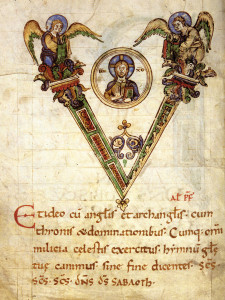 AL PF
Et ideo cū anglis et archanglis. cum
thronis & dominationibus. Cumq; omī
milicia celestis exercitus. hymnū glę
tuę canimus sine fine dicentes. Scs.
scs. scs. dns ds sabaoth.